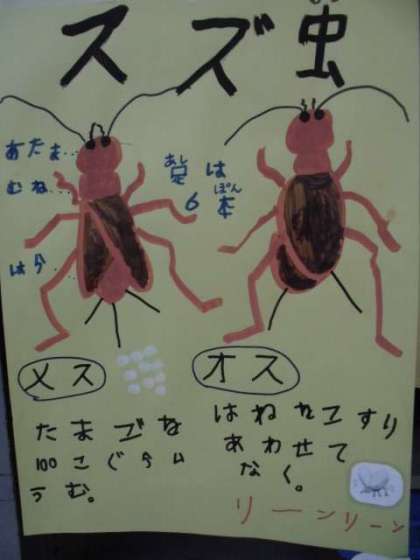 スズ虫
あたま
むね
はら
あし
足は
ぽん
6本
メス
たまごを
100こぐらい
うむ。
オス
はねをこすり
あわせて
なく。
リーンリーン